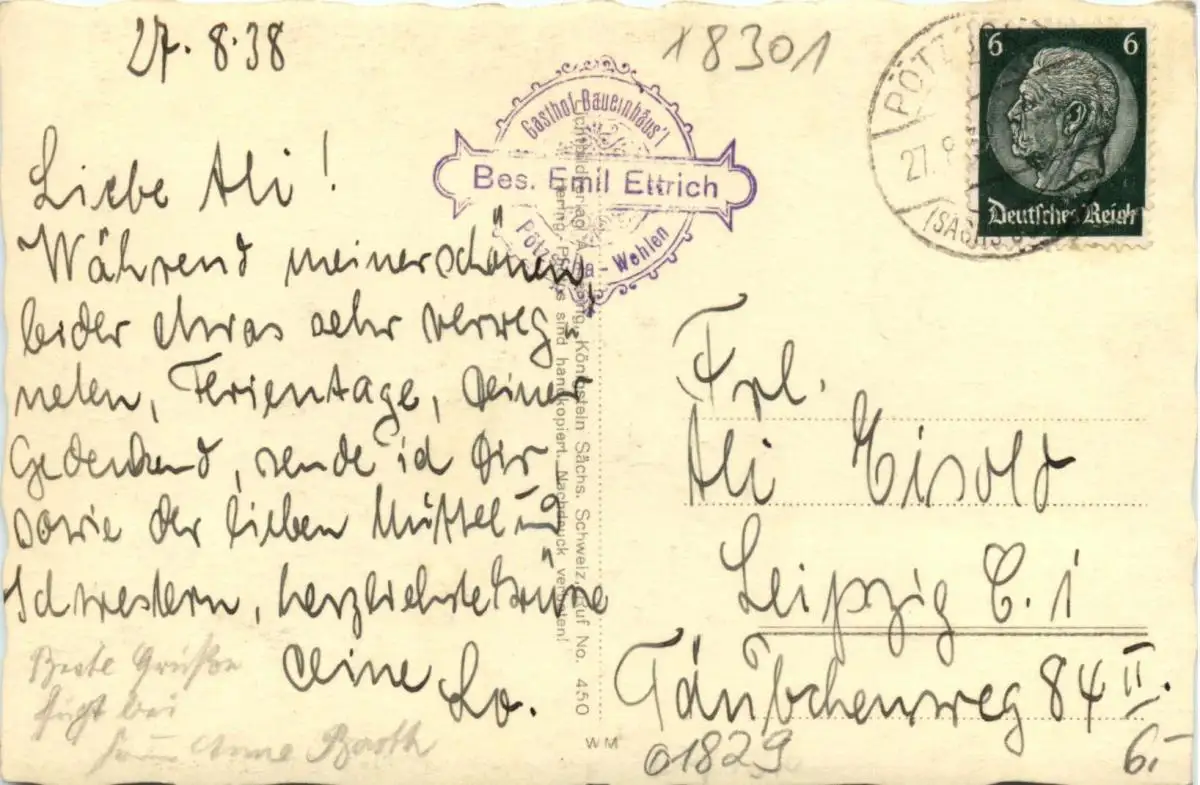 27.8.38
18301
Liebe Ali!
Während meiner schönen,
leider etwas sehr verreg-
neten, Ferientage, Deiner
Gedenkend, sende ich Dir
sowie der lieben Muttel und
Schwestern, herzlichste Grüsse
Deine
Lo.
Beste Grüße
fügt bei
Anna Barth
Gasthof Bauernhäus'l
Bes. Emil Ettrich
Pötzscha - Wehlen
Königstein Sächs. Schweiz, Auf No. 450
sind handkopiert. Nachdruck verboten!
WM
PÖTZSCHA
27.8
(SÄCHS
6 6
Deutsches Reich
Frl.
Ali Eisold
Leipzig C. 1
Täubchenweg 84 II.
01829
6.-